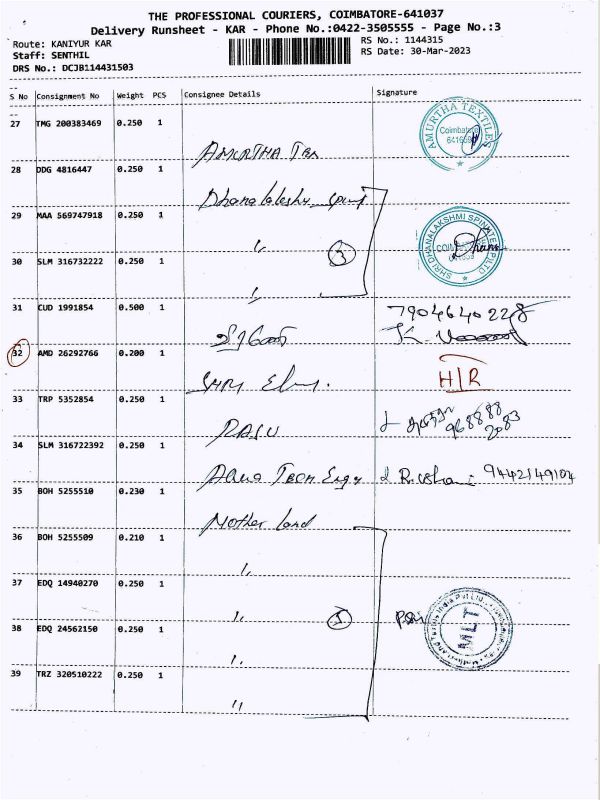 THE PROFESSIONAL COURIERS, COIMBATORE-641037
Delivery Runsheet - KAR - Phone No.:0422-3505555 - Page No.:3
Route: KANIYUR KAR
RS No.: 1144315
Staff: SENTHIL
RS Date: 30-Mar-2023
DRS No.: DCJB114431503
S No Consignment No Weight PCS Consignee Details Signature
27 TMG 200383469 0.250 1
AMURTHA TEXTILE
Coimbatore
AMURTHA Tex
28 DDG 4816447 0.250 1
Dhanalakshmi
29 MAA 569747918 0.250 1
〃 3
SHRI DHANALAKSHMI SPINTEX (P) LTD
30 SLM 316732222 0.250 1
〃
31 CUD 1991854 0.500 1
7904640228
32 AMD 26292766 0.200 1
H/R
33 TRP 5352854 0.250 1
RASU
968888
2083
34 SLM 316722392 0.250 1
Tech Engg R. Usha 9442149104
35 BOH 5255510 0.230 1
Mother land
36 BOH 5255509 0.210 1
〃
37 EDQ 14940270 0.250 1
〃 5
MLT
38 EDQ 24562150 0.250 1
〃
39 TRZ 320510222 0.250 1
〃